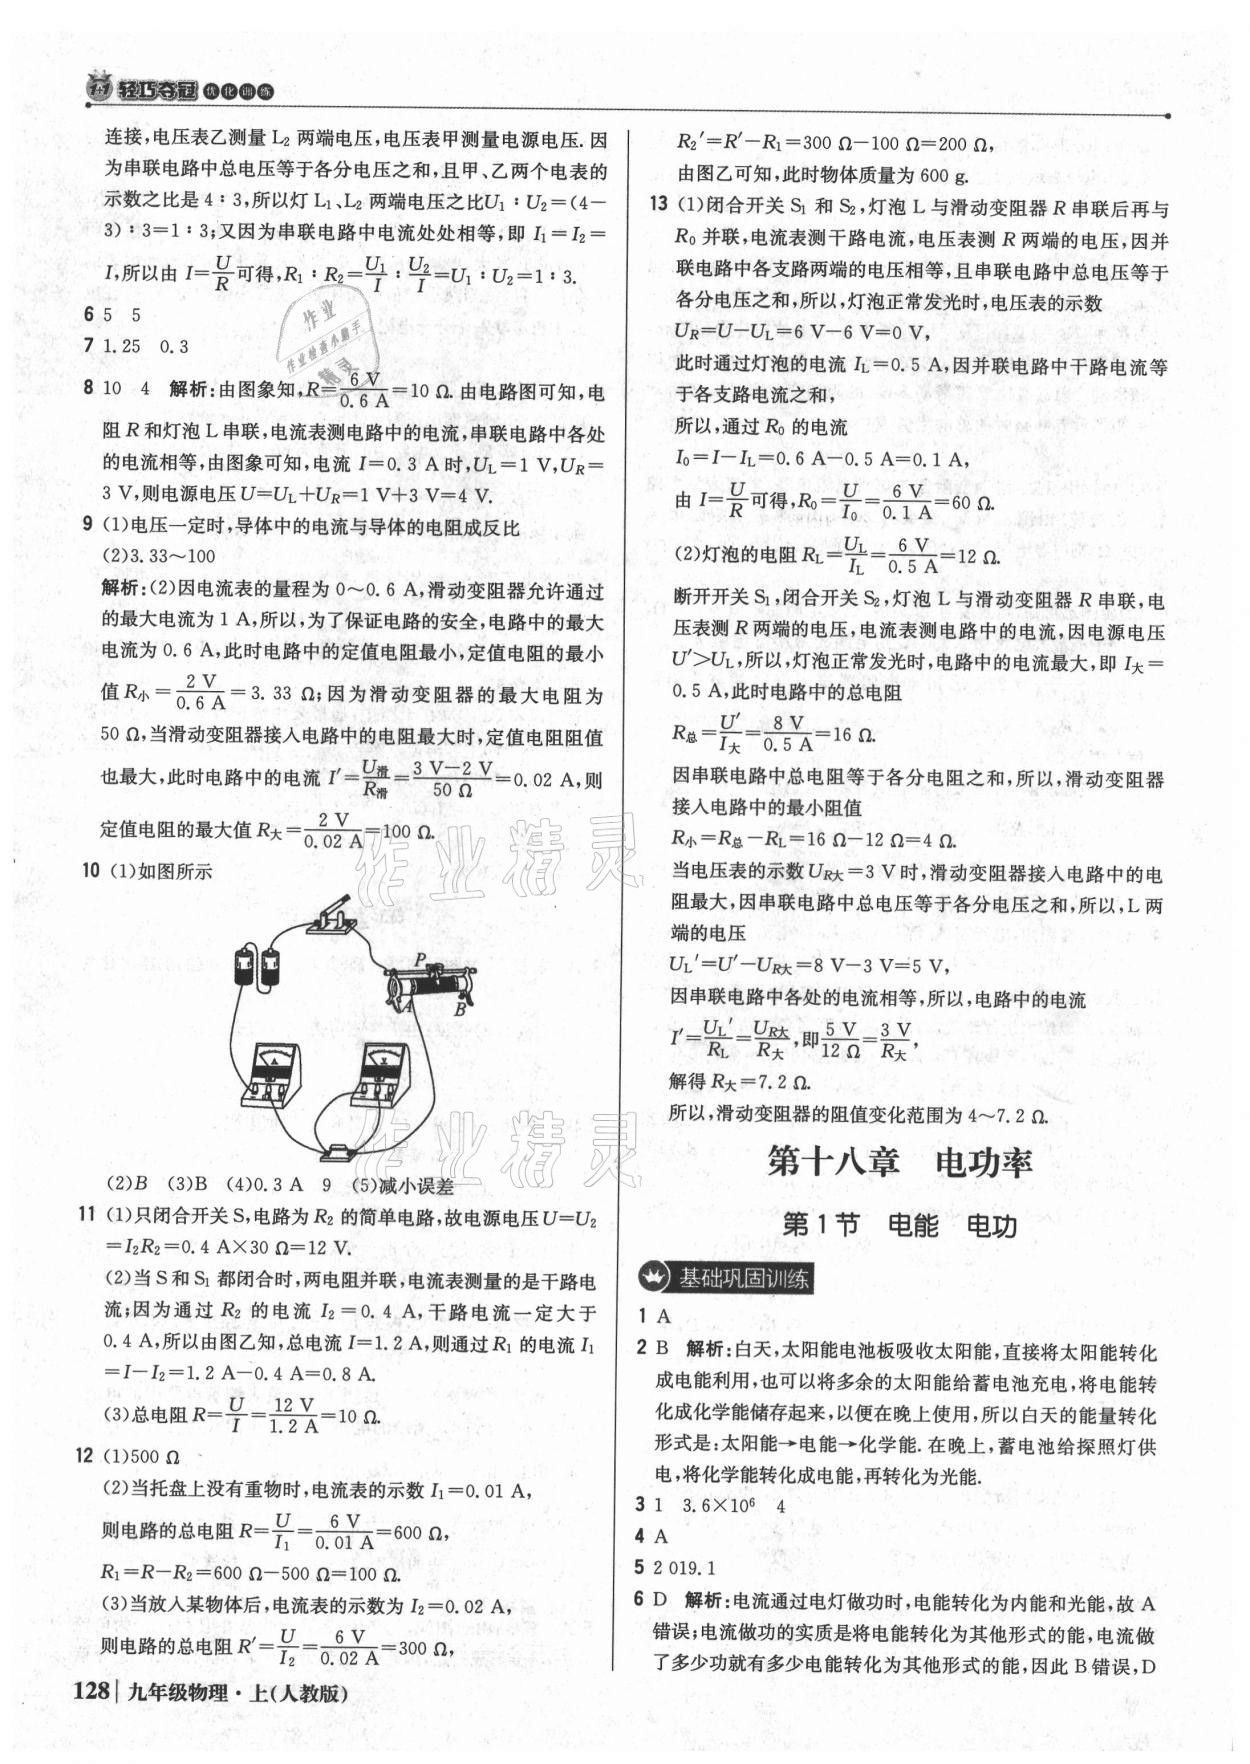 1+1 轻巧夺冠 优化训练
连接,电压表乙测量 L₂ 两端电压,电压表甲测量电源电压. 因
为串联电路中总电压等于各分电压之和,且甲、乙两个电表的
示数之比是 4∶3,所以灯 L₁、L₂ 两端电压之比U₁∶U₂=(4-
3)∶3=1∶3;又因为串联电路中电流处处相等,即 I₁=I₂=
I,所以由 I=U/R可得,R₁∶R₂=U₁/I∶U₂/I=U₁∶U₂=1∶3.
6 5 5
7 1.25 0.3
8 10 4 解析:由图象知,R=6 V/0.6 A=10 Ω. 由电路图可知,电
阻 R 和灯泡 L 串联,电流表测电路中的电流,串联电路中各处
的电流相等,由图象可知,电流 I=0.3 A 时,U_L=1 V,U_R=
3 V,则电源电压 U=U_L+U_R=1 V+3 V=4 V.
9 (1)电压一定时,导体中的电流与导体的电阻成反比
(2)3.33~100
解析:(2)因电流表的量程为 0~0.6 A,滑动变阻器允许通过
的最大电流为 1 A,所以,为了保证电路的安全,电路中的最大
电流为 0.6 A,此时电路中的定值电阻最小,定值电阻的最小
值 R小=2 V/0.6 A=3.33 Ω;因为滑动变阻器的最大电阻为
50 Ω,当滑动变阻器接入电路中的电阻最大时,定值电阻阻值
也最大,此时电路中的电流 I′=U滑/R滑=3 V-2 V/50 Ω=0.02 A,则
定值电阻的最大值 R大=2 V/0.02 A=100 Ω.
10 (1)如图所示
P
A
B
A
V
(2)B (3)B (4)0.3 A 9 (5)减小误差
11 (1)只闭合开关 S,电路为 R₂ 的简单电路,故电源电压 U=U₂
=I₂R₂=0.4 A×30 Ω=12 V.
(2)当 S 和 S₁ 都闭合时,两电阻并联,电流表测量的是干路电
流;因为通过 R₂ 的电流 I₂=0.4 A,干路电流一定大于
0.4 A,所以由图乙知,总电流 I=1.2 A,则通过 R₁ 的电流 I₁
=I-I₂=1.2 A-0.4 A=0.8 A.
(3)总电阻 R=U/I=12 V/1.2 A=10 Ω.
12 (1)500 Ω
(2)当托盘上没有重物时,电流表的示数 I₁=0.01 A,
则电路的总电阻 R=U/I₁=6 V/0.01 A=600 Ω,
R₁=R-R₂=600 Ω-500 Ω=100 Ω.
(3)当放入某物体后,电流表的示数为 I₂=0.02 A,
则电路的总电阻 R′=U/I₂=6 V/0.02 A=300 Ω,
128 九年级物理·上(人教版)
R₂′=R′-R₁=300 Ω-100 Ω=200 Ω,
由图乙可知,此时物体质量为 600 g.
13 (1)闭合开关 S₁ 和 S₂,灯泡 L 与滑动变阻器 R 串联后再与
R₀ 并联,电流表测干路电流,电压表测 R 两端的电压,因并
联电路中各支路两端的电压相等,且串联电路中总电压等于
各分电压之和,所以,灯泡正常发光时,电压表的示数
U_R=U-U_L=6 V-6 V=0 V,
此时通过灯泡的电流 I_L=0.5 A,因并联电路中干路电流等
于各支路电流之和,
所以,通过 R₀ 的电流
I₀=I-I_L=0.6 A-0.5 A=0.1 A,
由 I=U/R可得,R₀=U/I₀=6 V/0.1 A=60 Ω.
(2)灯泡的电阻 R_L=U_L/I_L=6 V/0.5 A=12 Ω.
断开开关 S₁,闭合开关 S₂,灯泡 L 与滑动变阻器 R 串联,电
压表测 R 两端的电压,电流表测电路中的电流,因电源电压
U′>U_L,所以,灯泡正常发光时,电路中的电流最大,即 I大=
0.5 A,此时电路中的总电阻
R总=U′/I大=8 V/0.5 A=16 Ω.
因串联电路中总电阻等于各分电阻之和,所以,滑动变阻器
接入电路中的最小阻值
R小=R总-R_L=16 Ω-12 Ω=4 Ω.
当电压表的示数 U_R大=3 V 时,滑动变阻器接入电路中的电
阻最大,因串联电路中总电压等于各分电压之和,所以,L 两
端的电压
U_L′=U′-U_R大=8 V-3 V=5 V,
因串联电路中各处的电流相等,所以,电路中的电流
I′=U_L′/R_L=U_R大/R大,即5 V/12 Ω=3 V/R大,
解得 R大=7.2 Ω.
所以,滑动变阻器的阻值变化范围为 4~7.2 Ω.
第十八章 电功率
第 1 节 电能 电功
基础巩固训练
1 A
2 B 解析:白天,太阳能电池板吸收太阳能,直接将太阳能转化
成电能利用,也可以将多余的太阳能给蓄电池充电,将电能转
化成化学能储存起来,以便在晚上使用,所以白天的能量转化
形式是:太阳能→电能→化学能. 在晚上,蓄电池给探照灯供
电,将化学能转化成电能,再转化为光能.
3 1 3.6×10⁶ 4
4 A
5 2 019.1
6 D 解析:电流通过电灯做功时,电能转化为内能和光能,故 A
错误;电流做功的实质是将电能转化为其他形式的能,电流做
了多少功就有多少电能转化为其他形式的能,因此 B 错误,D
作业
作业检查小助手
精灵
作业精灵
作业精灵